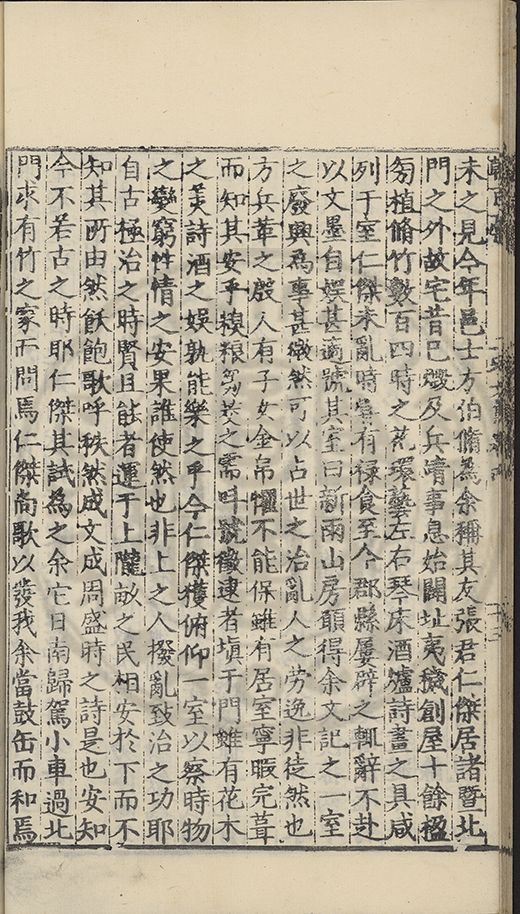 未之見今年邑士方伯脩為余稱其友張君仁傑居諸暨北
門之外故宅昔已燬及兵靖事息始闢址夷穢創屋十餘楹
旁植脩竹數百四時之花環藝左右琴床酒爐詩畫之具咸
列于室仁傑未亂時嘗有祿食至今郡縣屢辟之輒辭不赴
以文墨自娛甚適號其室曰新雨山房願得余文記之一室
之廢興為事甚微然可以占世之治亂人之勞逸非徒然也
方兵革之殷人有子女金帛懼不能保雖有居室寧暇完葺
而知其安乎糗粮芻茭之需叫號徵逮者塡于門雖有花木
之美詩酒之娛孰能樂之乎今仁傑獲俯仰一室以察時物
之變窮性情之安果誰使然也非上之人撥亂致治之功耶
自古極治之時賢且能者運于上隴畝之民相安於下而不
知其所由然飫飽歌呼秩然成文成周盛時之詩是也安知
今不若古之時耶仁傑其試為之余它日南歸駕小車過北
門求有竹之家而問焉仁傑尚歌以發我余當鼓缶而和焉